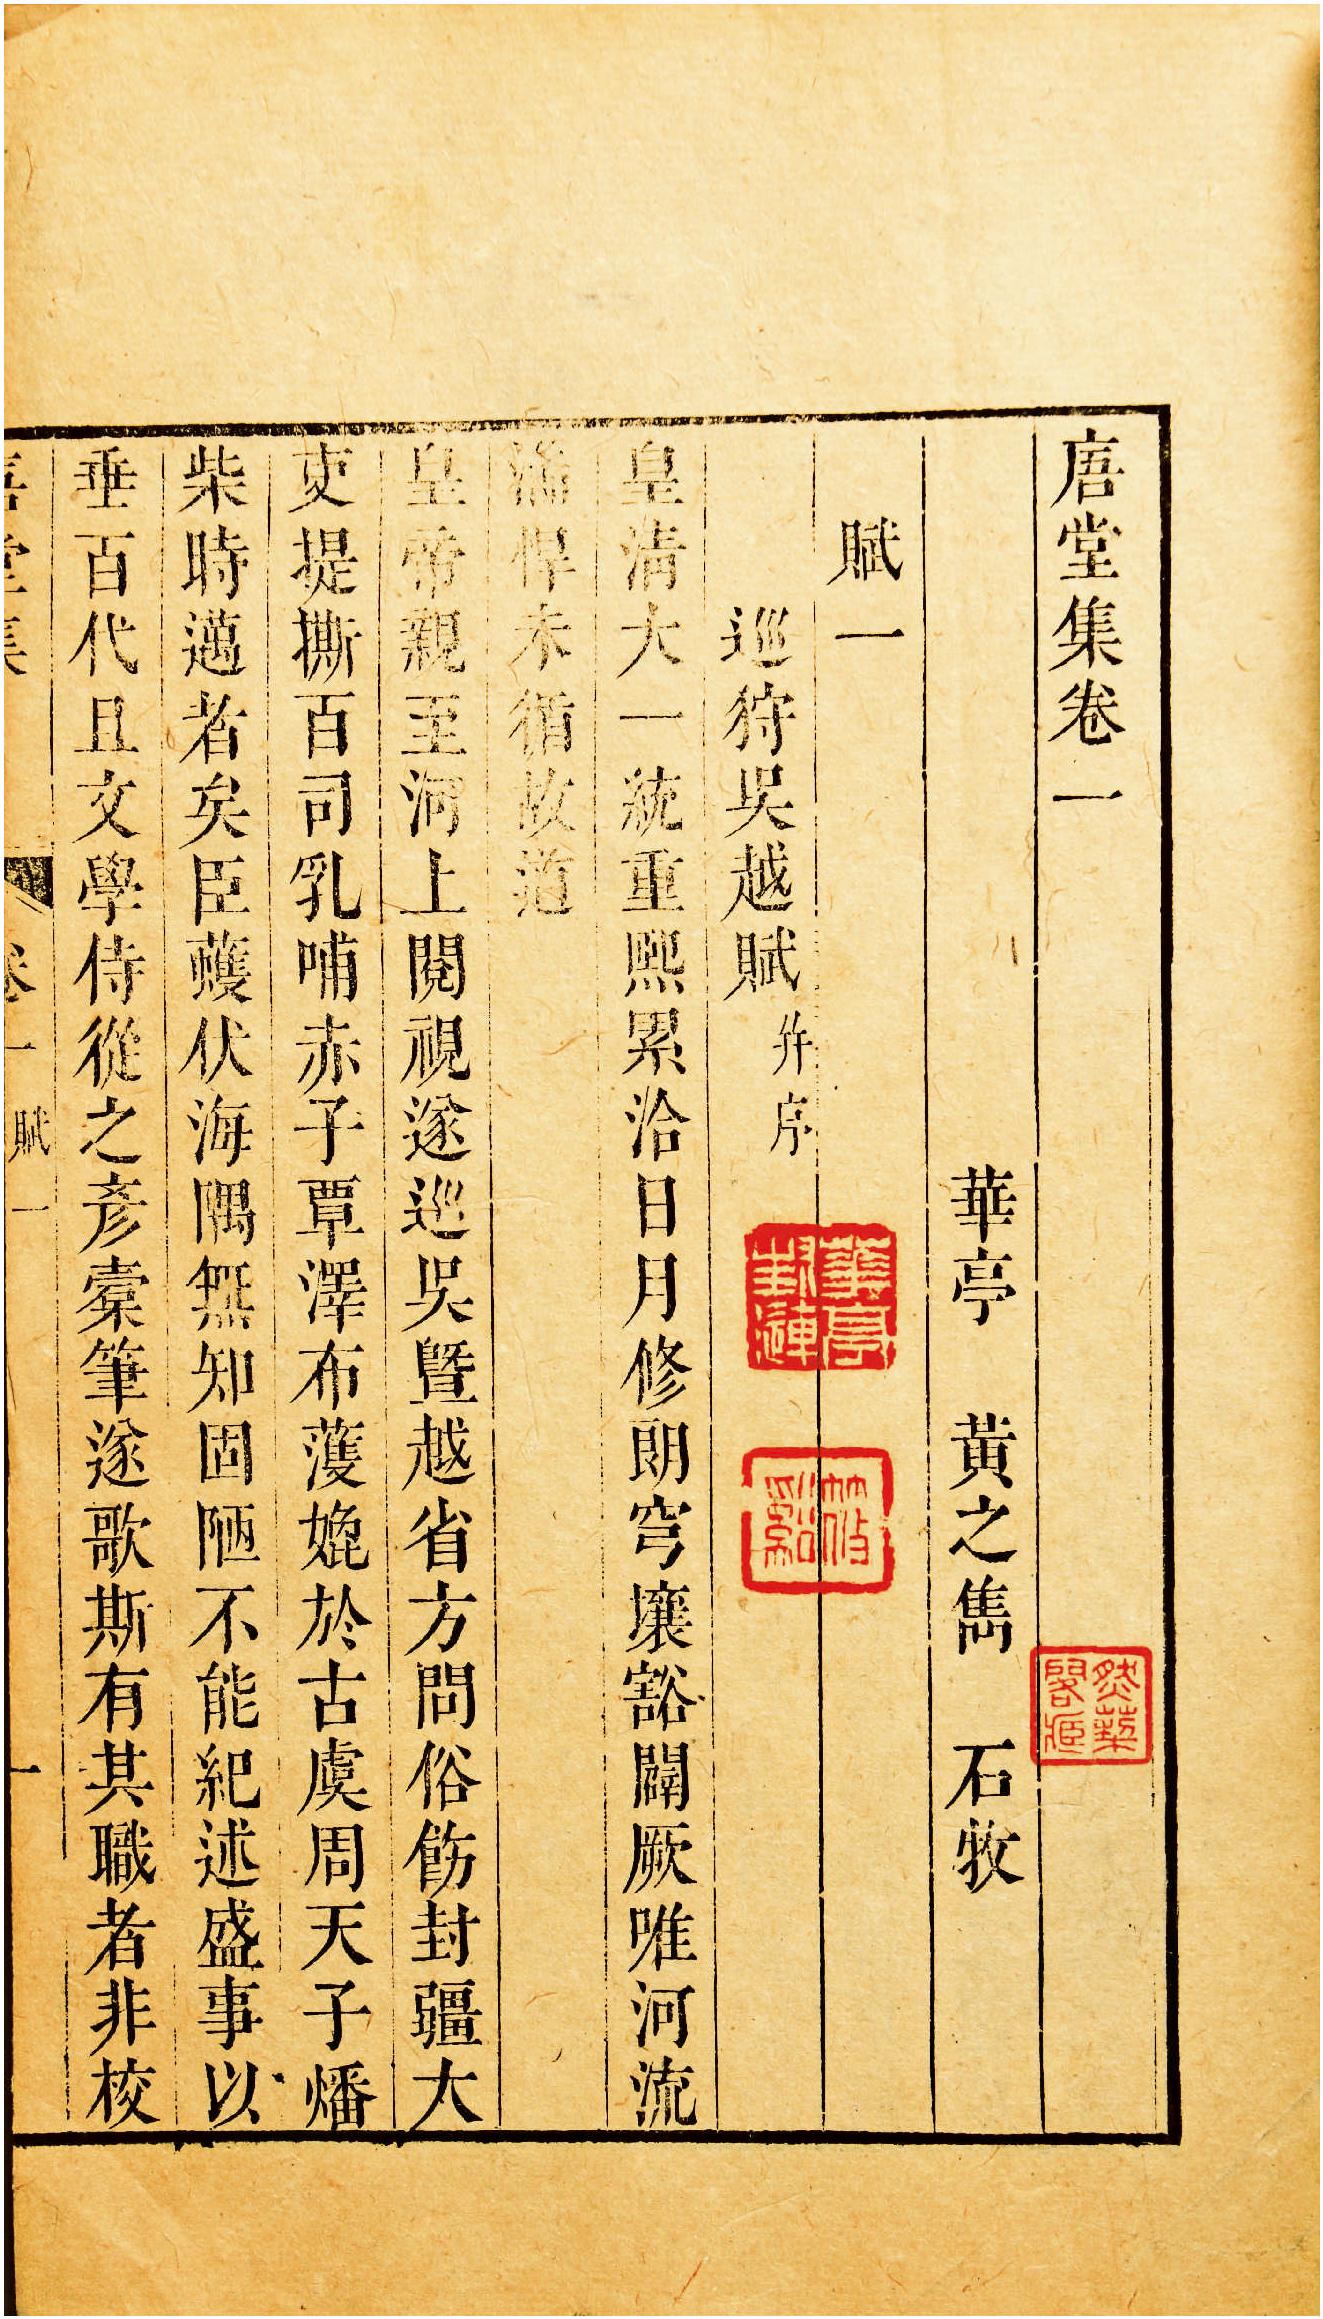 唐堂集卷一
華亭　黃之雋　石牧
賦一
巡狩吳越賦 并序
皇清大一統重熙累洽日月修朗穹壤豁闢厥唯河流
湍悍未循故道
皇帝親至河上閱視遂巡吳暨越省方問俗飭封疆大
吏提撕百司乳哺赤子覃澤布濩媲於古虞周天子燔
柴時邁者矣臣蠖伏海隅無知固陋不能紀述盛事以
垂百代且文學侍從之彥橐筆遂歌斯有其職者非校
唐堂集　卷一　賦一　一